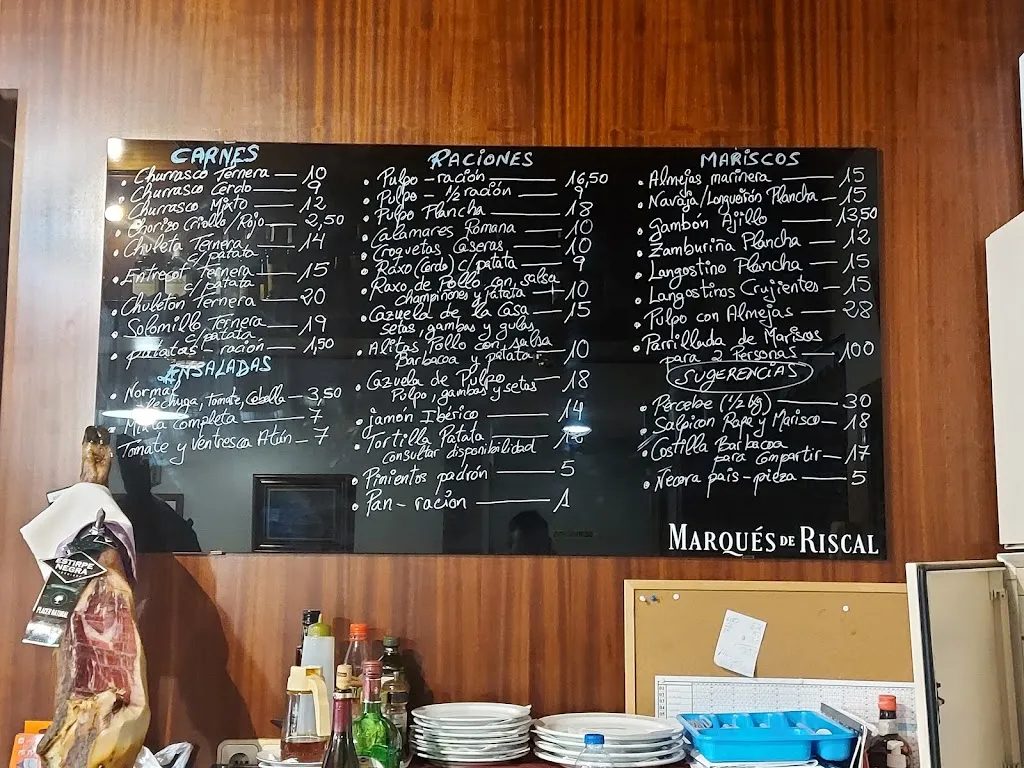 CARNES
• Churrasco Ternera — 10
• Churrasco Cerdo — 9
• Churrasco Mixto — 12
• Chorizo Criollo/Rojo — 2,50
• Chuleta Ternera — 14
c/patata
• Entrecot Ternera — 15
c/patata
• Chuletón Ternera — 20
• Solomillo Ternera — 19
c/patata
• patatas - ración — 1,50
ENSALADAS
• Normal
lechuga, Tomate, Cebolla — 3,50
Mixta completa — 7
Tomate y Ventresca Atún — 7
RACIONES
• Pulpo - ración — 16,50
• Pulpo - 1/2 ración — 9
• Pulpo Plancha — 18
• Calamares Romana — 10
• Croquetas Caseras — 10
• Raxo (Cerdo) c/patata — 9
• Raxo de Pollo con salsa
champiñones y patata — 10
• Cazuela de la Casa — 15
setas, gambas y gulas
• Alitas Pollo con salsa
Barbacoa y patata — 10
• Cazuela de Pulpo — 18
Pulpo, gambas y setas
• jamón Ibérico — 14
• Tortilla Patata —
consultar disponibilidad
• Pimientos padrón — 5
• Pan - ración — 1
MARISCOS
• Almejas marinera — 15
• Navaja/Longueirón Plancha — 15
• Gambón Ajillo — 13,50
• Zamburiña Plancha — 12
• Langostino Plancha — 15
• Langostinos Crujientes — 15
• Pulpo con Almejas — 28
• Parrillada de Mariscos
para 2 Personas — 100
SUGERENCIAS
• Percebe (1/2 kg) — 30
• Salpicon Rape y Marisco — 18
• Costilla Barbacoa
para Compartir — 17
• Nécora pais - pieza — 5
MARQUÉS DE RISCAL
ESTIRPE
NEGRA
PLACER NATURAL